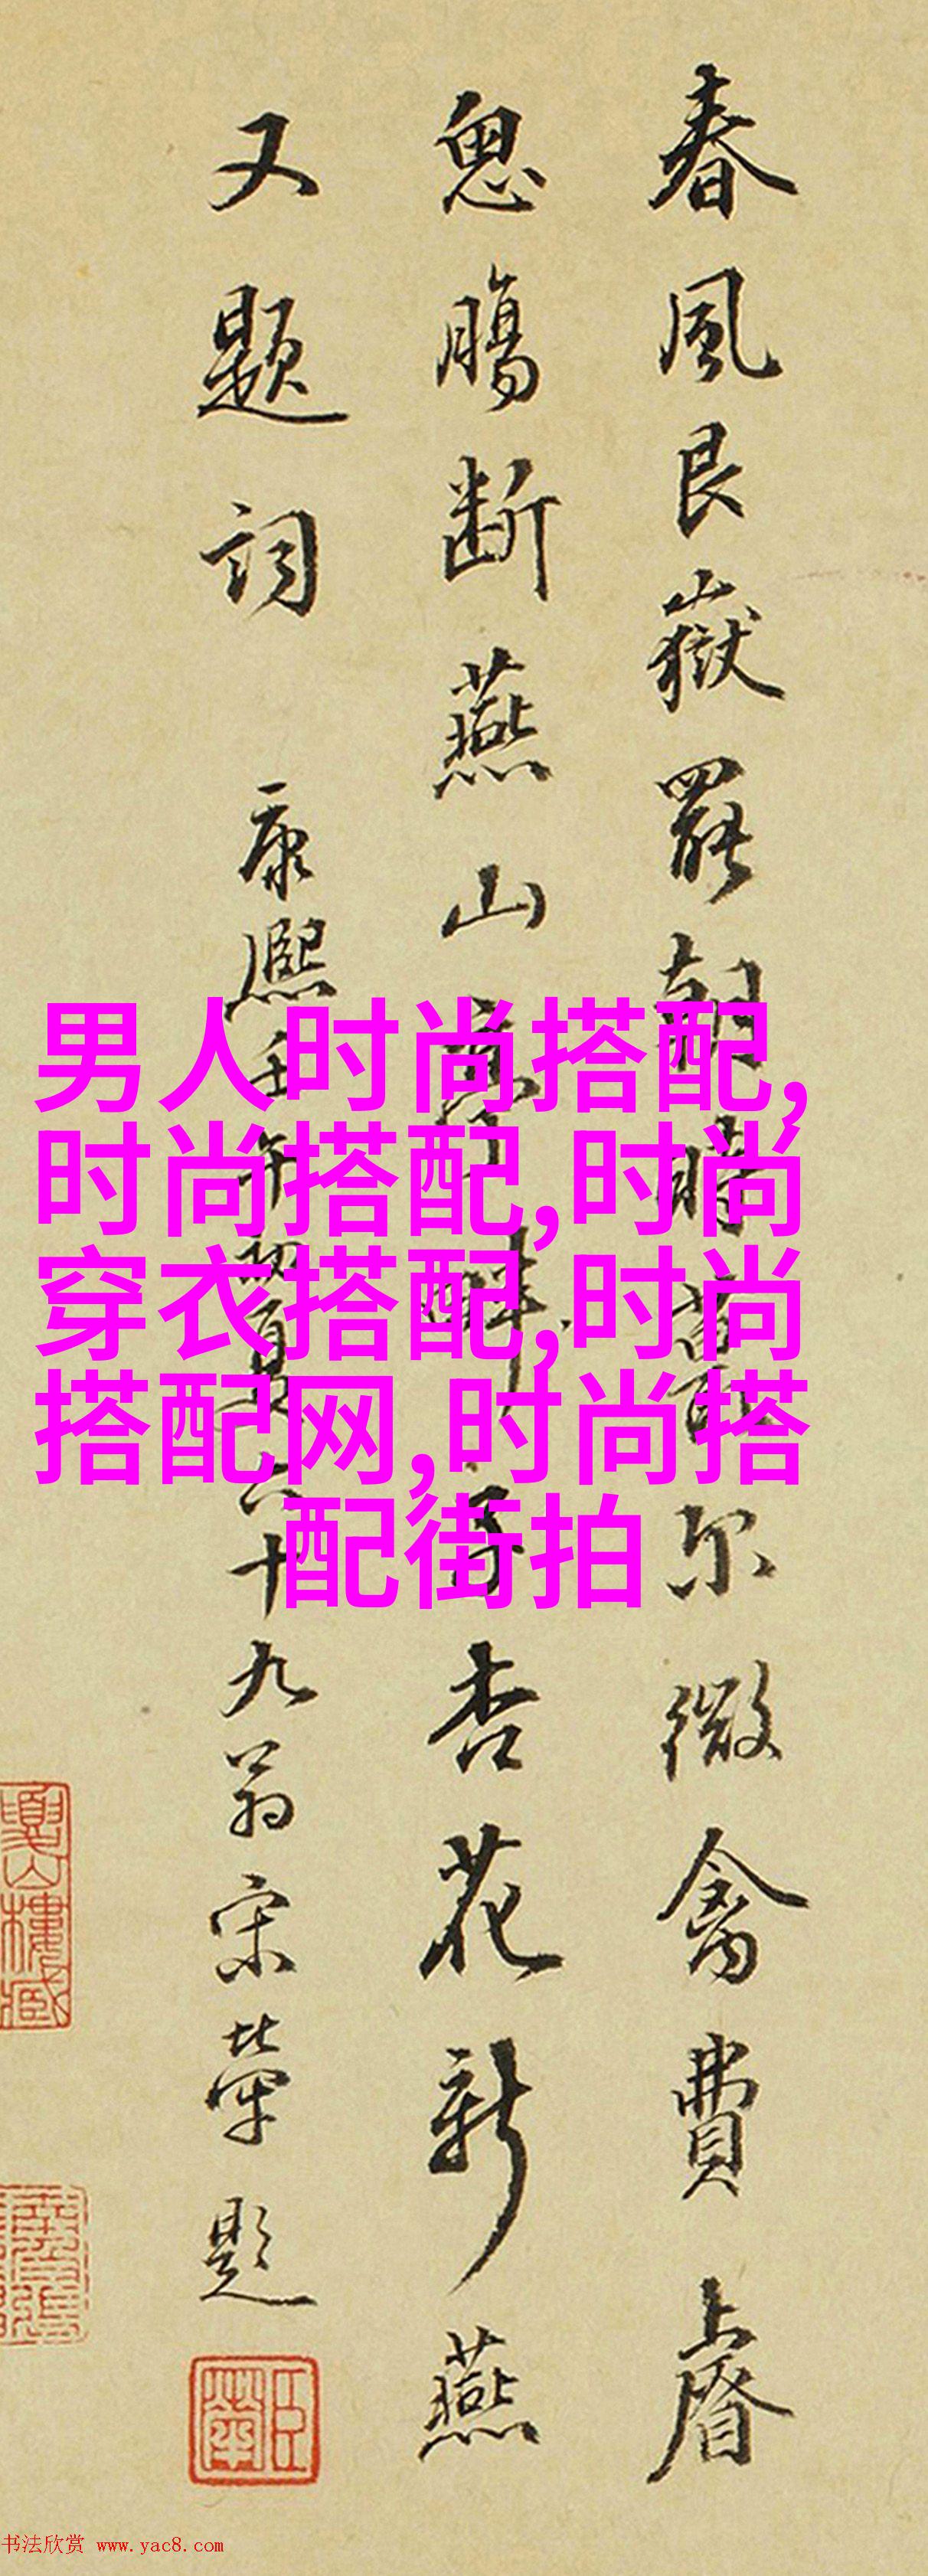 春風艮嶽罷朝尔微禽費上
腸斷燕山杏花新燕
又題詞 康熙壬午六十九翁宋犖題
臣犖
男人时尚搭配,
时尚搭配,时尚
穿衣搭配,时尚
搭配网,时尚搭
配街拍
书法欣赏 www.yac8.com